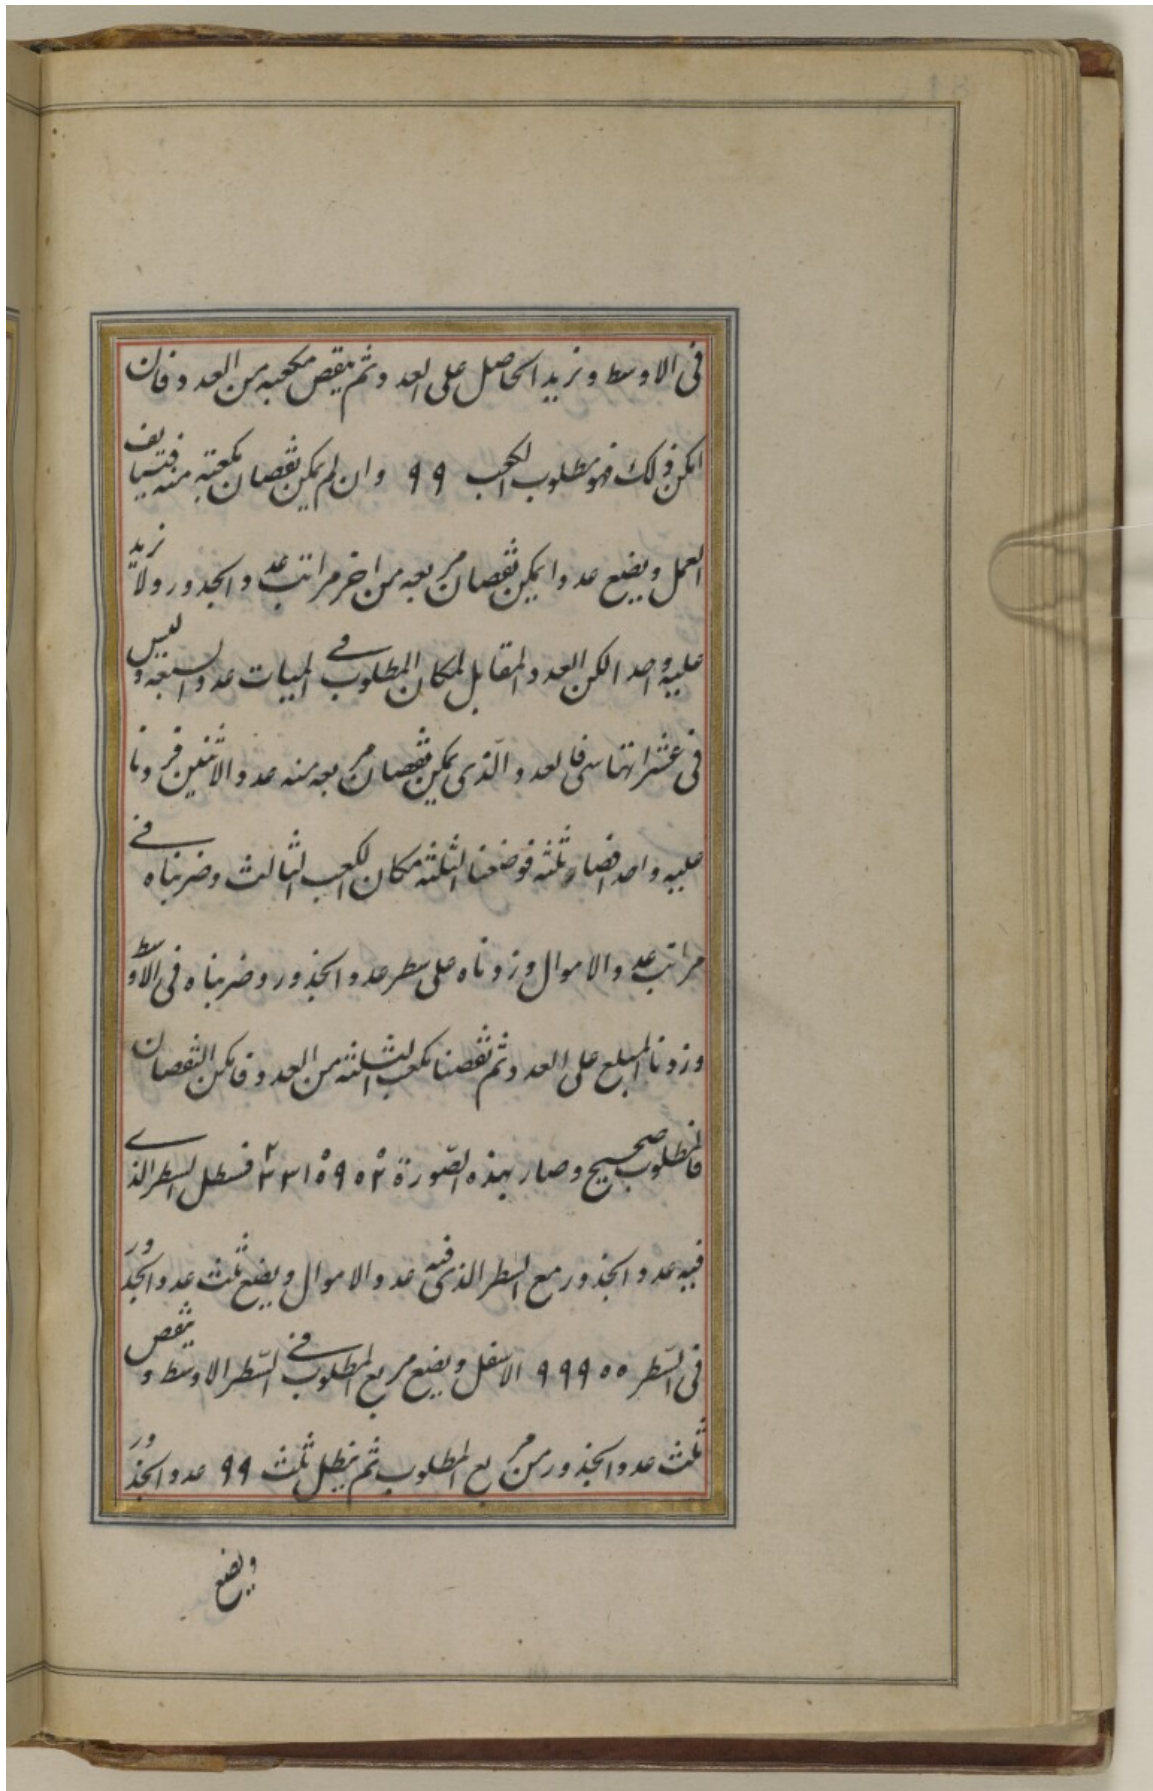 فى الاوسط ونزيد الحاصل على العدد ثم ينقص مكعبه من العدد فان
امكن ذلك فهو مطلوب الكعب ٩٩ وان لم يمكن نقصان مكعبه منه فتستانف
العمل ويضع عددا يمكن نقصان مربعه من اخر مراتب عدد الجذور ولا نزيد
عليه واحدا لكن العدد المقابل لمكان المطلوب فى المبيات عدد السبعة وليس
فى عشر اتها شى فالعدد الذى يمكن نقصان مربعه منه عدد الاثنين فزدنا
عليه واحدا فصار ثلثه فوضعنا الثلثه مكان الكعب الثالث وضربناه فى
مراتب عدد الاموال وزدناه على سطر عدد الجذور وضربناه فى الاوسط
وزدنا المبلع على العدد ثم نقصنا مكعب الثلثه من العدد فامكن النقصان
فالمطلوب صحيح وصار بهذه الصورة فسطل السطر الذى
فيه عدد الجذور مع السطر الذى فيه عدد الاموال ويضع ثلث عدد الجذور
فى السطر ٩٩٩٥٥ الاسفل ويضع مربع المطلوب فى السطر الاوسط وينقص
ثلث عدد الجذور من مربع المطلوب ثم يبطل ثلث ٩٩ عدد الجذور
ويضع